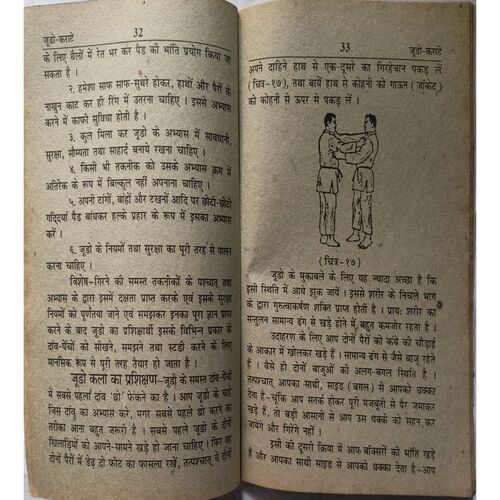 जूडो-कराटे 32
के लिए थैलों में रेत भर कर पैड की भांति प्रयोग किया जा
सकता है ।
२. हमेशा साफ साफ-सुथर होकर, हाथों और पैरों के
नाखुन काट कर ही रिंग में उतरना चाहिए । इससे अभ्यास
करने में काफी सुविधा होती है ।
३. कुल मिला कर जूडो के अभ्यास में सावधानी,
सुरक्षा, सौम्यता तथा साहार्द बनाये रखना चाहिए ।
४. किसी भी तकनीक को उसके अभ्यास क्रम में
अतिरेक के रूप में बिल्कुल नहीं अपनाना चाहिए ।
५. अपनी टांगों, बांहों और टखनों आदि पर छोटी-छोटी
गद्दियाँ पैड बांधकर हल्के प्रहार के रूप में इसका अभ्यास
करें ।
६. जूडो के नियमों तथा सुरक्षा का पूरी तरह से पालन
करना चाहिए ।
विशेष-गिरने की समस्त तकनीकों के पश्चात् तथा
अभ्यास के द्वारा इसमें दक्षता प्राप्त करके एवं इसके सुरक्षा
नियमों को पूर्णतया जाने एवं समझकर इनका पूरा ज्ञान प्राप्त
करने के बाद जूडो का प्रशिक्षार्थी इसके विभिन्न प्रकार के
दांव-पेंचों को सीखने, समझने तथा स्टडी करने के लिए
मानसिक रूप से पूरी तरह तैयार हो जाता है ।
जूडो कला का प्रशिक्षण-जूडो के समस्त दांव-पेंचों
में सबसे पहला दांव 'थ्रो' फेंकने का है । आप जूडो के चाहे
जिस दांव का अभ्यास करे, मगर सबसे पहले थ्रो करने का
तरीका आना बहुत जरूरी है । सबसे पहले जूडो के दोनों
खिलाड़ियों को आपने-सामने खड़े हो जाना चाहिए । फिर वह
दोनों पैरों में डेढ़ दो फीट का फासला रखें, तत्पश्चात् वे दोनों
33 जूडो-कराटे
अपने दाहिने हाथ से एक-दूसरे का गिरहेबान पकड़ लें
(चित्र-१७), तथा बायें हाथ से कोहनी को गाऊन (जॉकेट)
को कोहनी से ऊपर से पकड़ लें ।
(चित्र-१७)
जूडो के मुकाबले के लिए यह ज्यादा अच्छा है कि
इसी स्थिति में आधे झुक जायें । इससे शरीर के निचले भाग
के द्वारा गुरुत्वाकर्षण शक्ति प्राप्त होती है । प्राय: शरीर का
सन्तुलन सामान्य ढंग से खड़े होने में, बहुत कमजोर रहता है ।
उदाहरण के लिए आप दोनों पैरों को कंधे की चौड़ाई
के आकार में खोलकर खड़े हैं । सामान्य ढंग से जैसे बाजू रहते
हैं । वैसे ही दोनों बाजुओं की अलग-बगल स्थिति है ।
तत्पश्चात् आपका साथी, साइड (बगल) से आपको धक्का
देता है-चूँकि आप सतर्क होकर पूरी मजबूती से पैर जमाकर
खड़े हैं, तो बड़ी आसानी से आप उस धक्के को सहन कर
जायेंगे और गिरेंगे नहीं ।
इसी की दूसरी क्रिया में आप बॉक्सरों की भांति खड़े
हैं और आपका साथी साइड से आपको धक्का देता है-आप